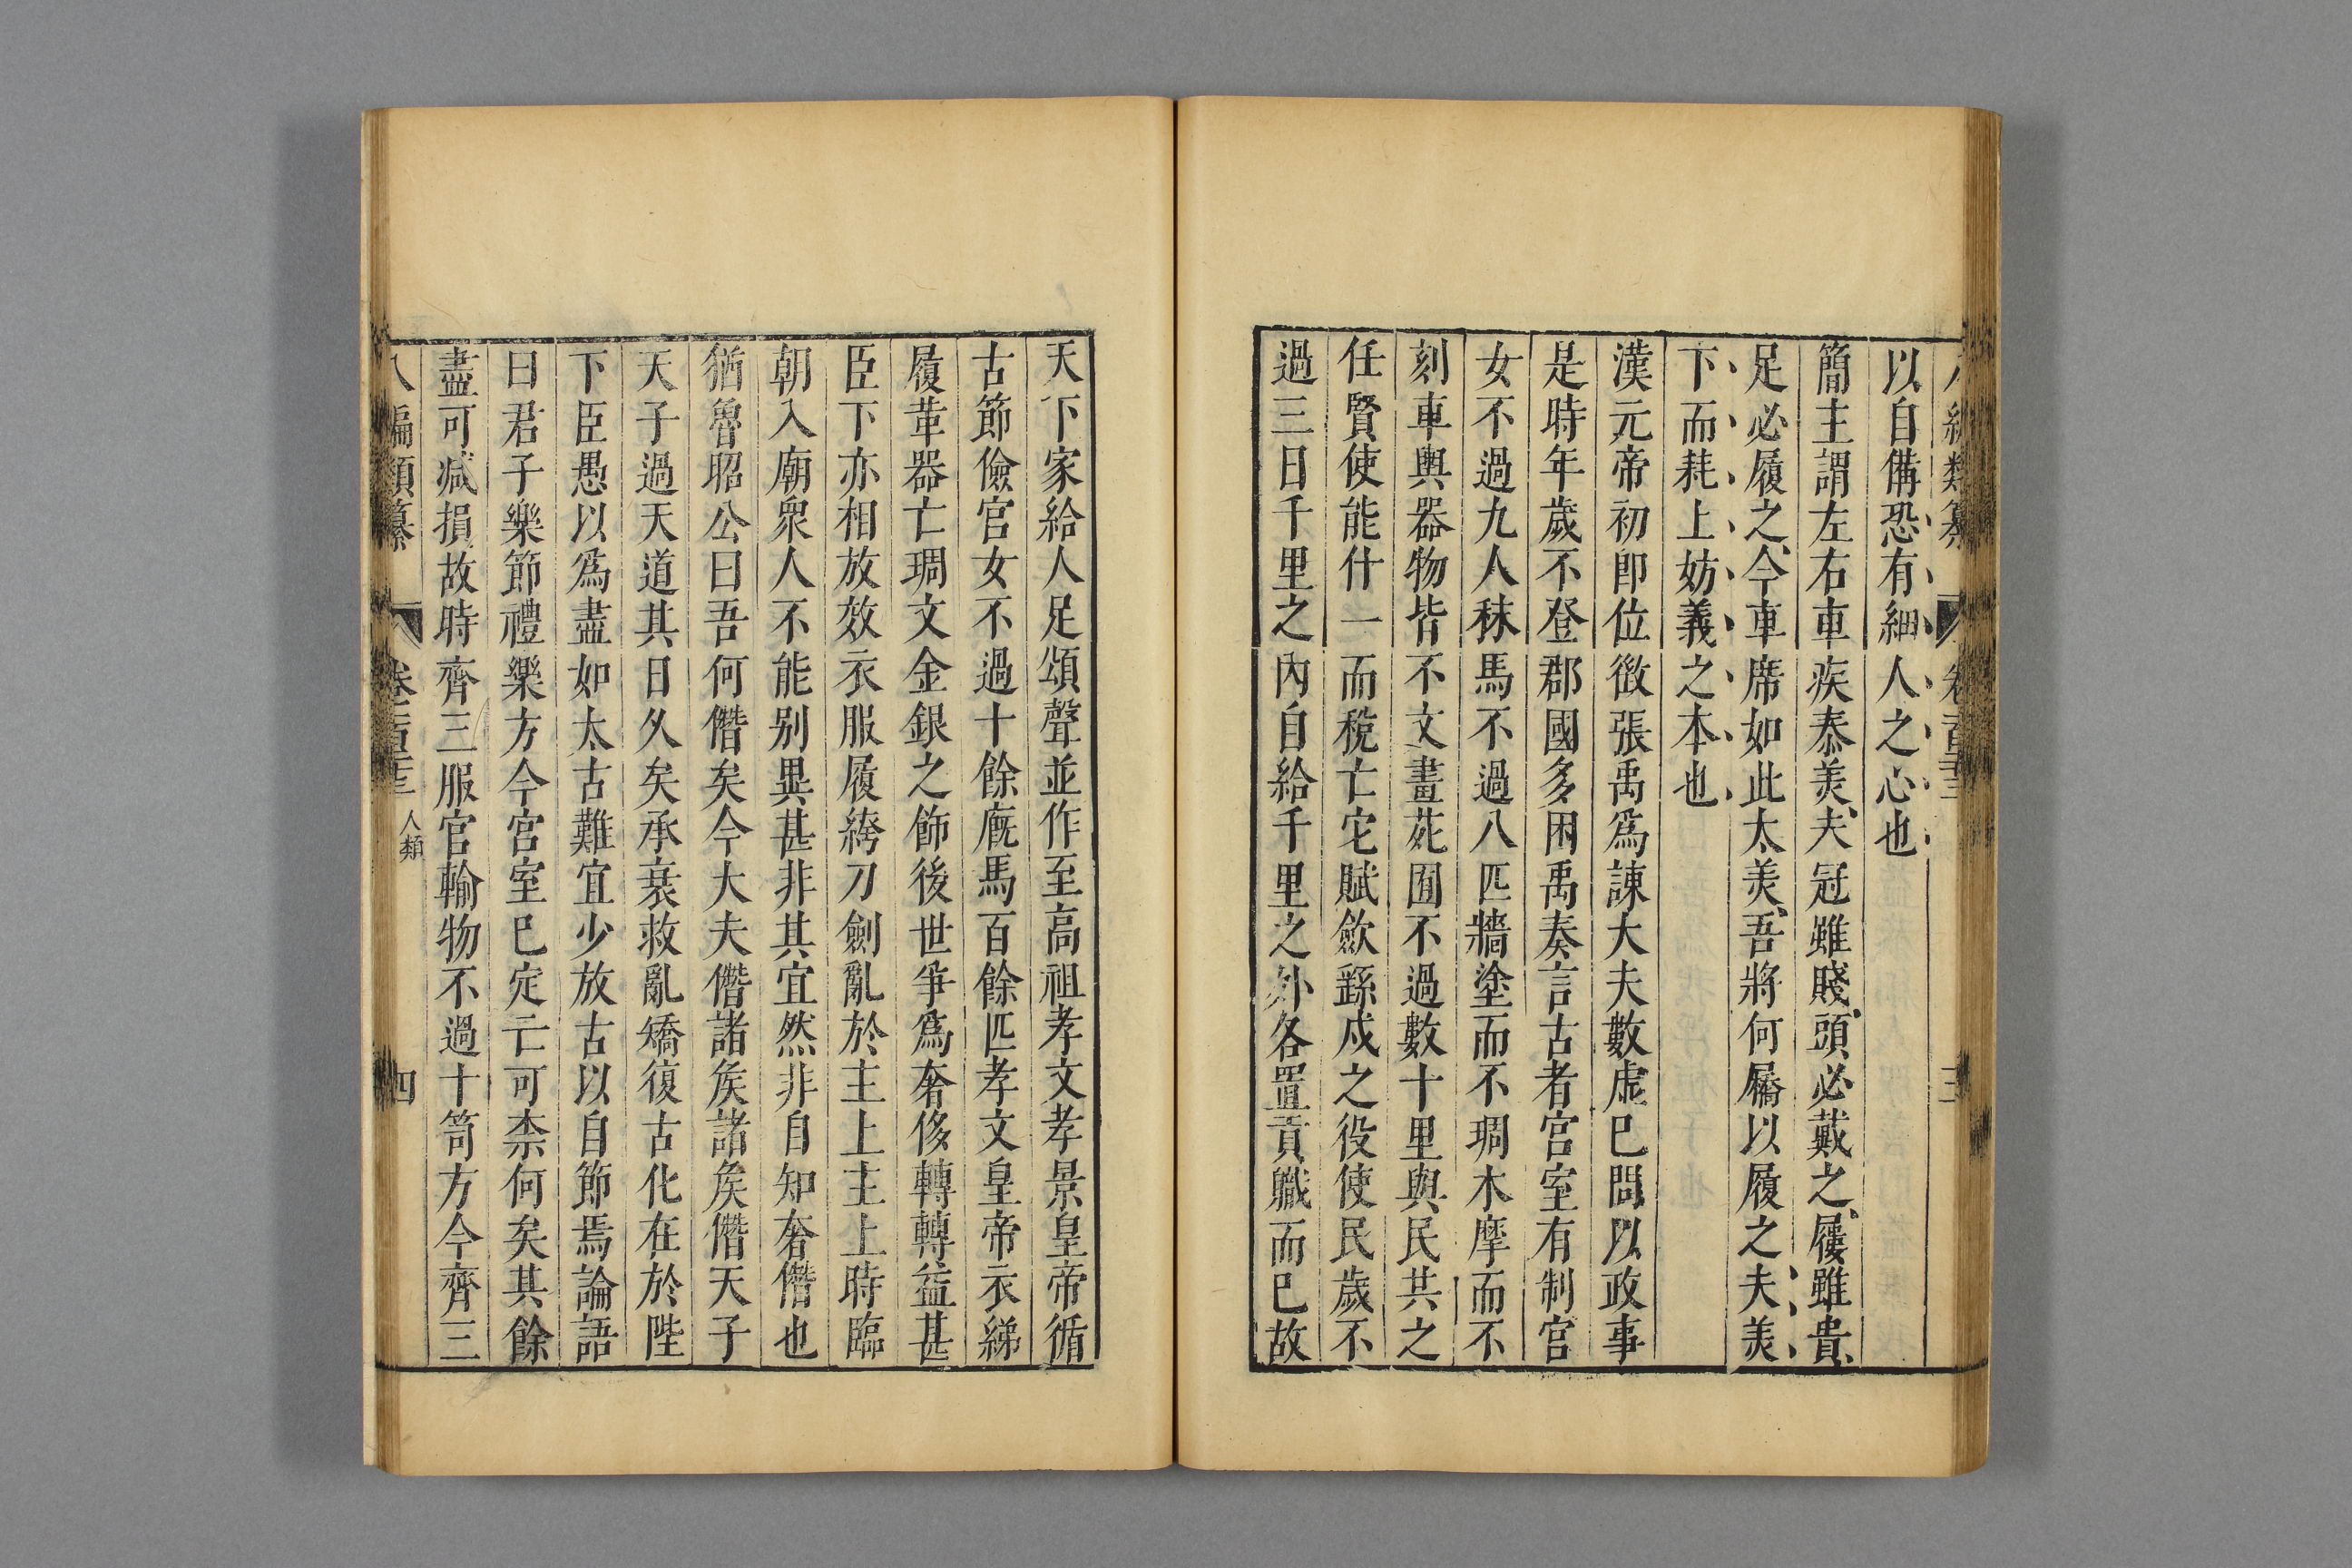 以自備恐有細人之心也
簡主謂左右車疾泰美夫冠雖賤頭必戴之屨雖貴
足必履之今車席如此太美吾將何屩以履之夫美
下而耗上妨義之本也
漢元帝初卽位徵張禹爲諫大夫數虛巳問以政事
是時年歲不登郡國多困禹奏言古者宮室有制宮
女不過九人秣馬不過八匹牆塗而不琱木摩而不
刻車輿器物皆不文畫苑囿不過數十里與民共之
任賢使能什一而稅亡它賦歛繇戍之役使民歲不
過三日千里之內自給千里之外各置貢職而巳故
天下家給人足頌聲並作至高祖孝文孝景皇帝循
古節儉宮女不過十餘廐馬百餘匹孝文皇帝衣綈
履革器亡琱文金銀之飾後世爭爲奢侈轉轉益甚
臣下亦相放效衣服履絝刀劍亂於主上主上時臨
朝入廟衆人不能別異甚非其宜然非自知奢僭也
猶魯昭公曰吾何僭矣今大夫僭諸矦諸矦僭天子
天子過天道其日久矣承衰救亂矯復古化在於陛
下臣愚以爲盡如太古難宜少放古以自節焉論語
曰君子樂節禮樂方今宮室巳定亡可柰何矣其餘
盡可减損故時齊三服官輸物不過十笥方今齊三
八編類纂 卷二百三十三 人類 四